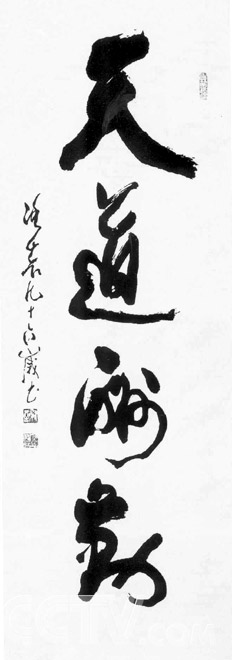 天道酬勤
九十六歲书